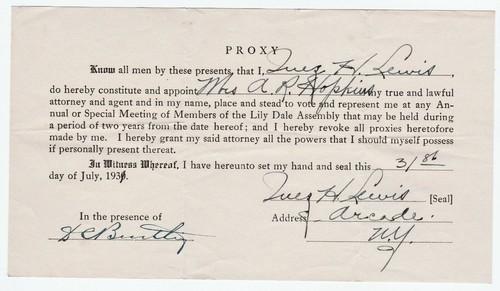 PROXY
Know all men by these presents, that I, Inez H. Lewis,
do hereby constitute and appoint Mrs A. R. Hopkins my true and lawful
attorney and agent and in my name, place and stead to vote and represent me at any An-
nual or Special Meeting of Members of the Lily Dale Assembly that may be held during
a period of two years from the date hereof; and I hereby revoke all proxies heretofore
made by me. I hereby grant my said attorney all the powers that I should myself possess
if personally present thereat.
In Witness Whereof, I have hereunto set my hand and seal this 31st
day of July, 193
Inez H Lewis [Seal]
In the presence of
Address Arcade.
N.Y.